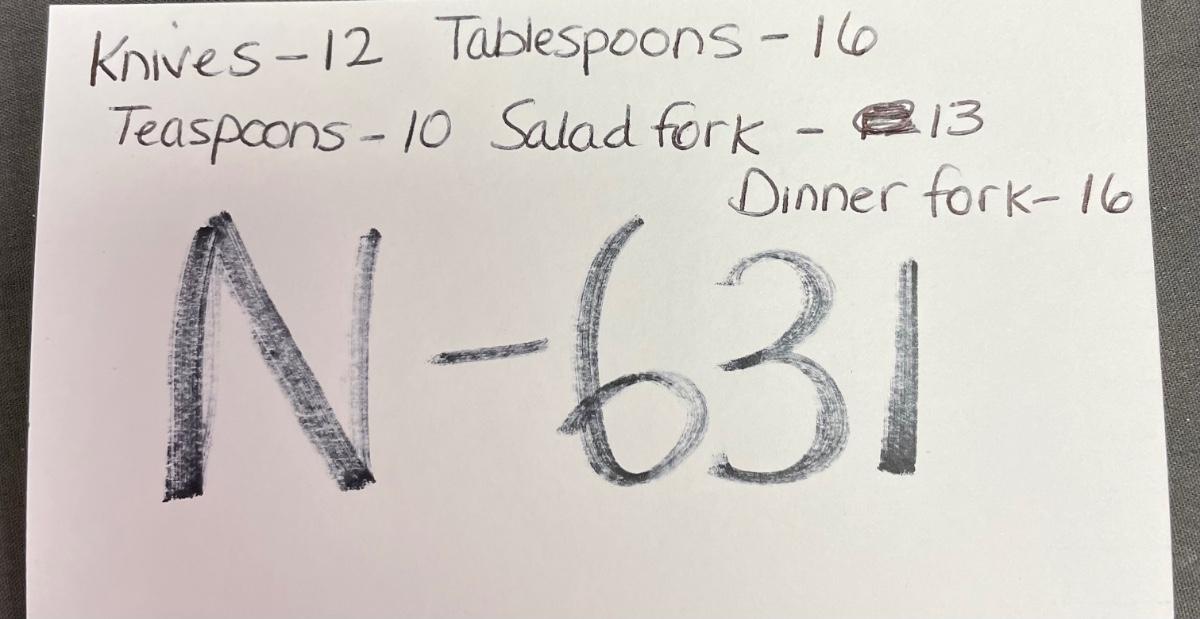 Knives - 12 Tablespoons - 16
Teaspoons - 10 Salad fork - 13
Dinner fork - 16
N - 631